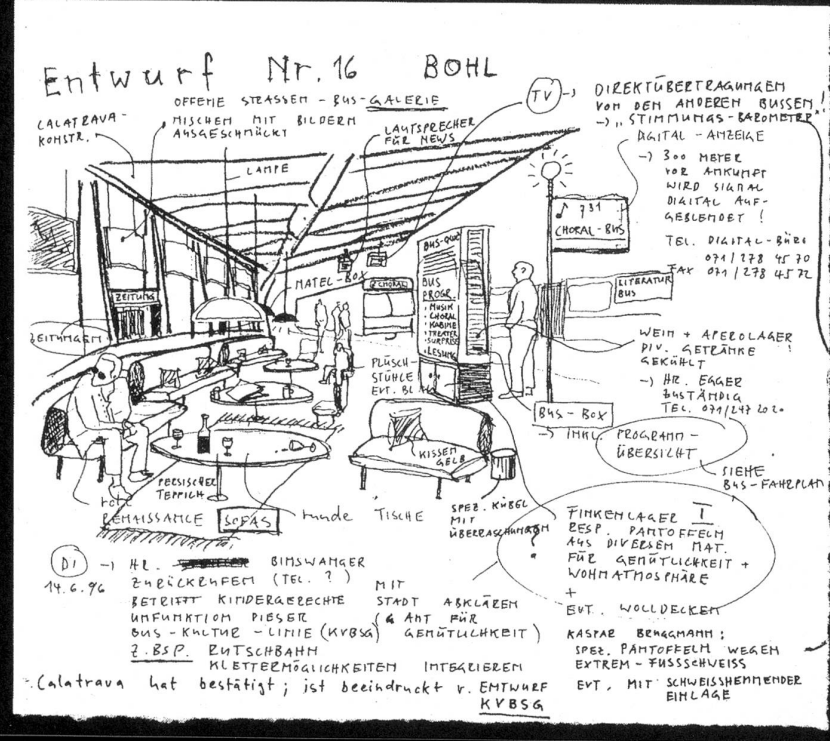 Entwurf Nr. 16 BOHL
CALATRAVA-
KONSTR.
OFFENE STRASSEN-BUS-GALERIE
NISCHEN MIT BILDERN
AUSGESCHMÜCKT
LAUTSPRECHER
FÜR NEWS
LAMPE
TV →
DIREKTÜBERTRAGUNGEN
VON DEN ANDEREN BUSSEN!
→ "STIMMUNGS-BAROMETER"
DIGITAL-ANZEIGE
→ 300 METER
VOR ANKUNFT
WIRD SIGNAL
DIGITAL AUF-
GEBLENDET!
TEL. DIGITAL-BÜRO
071/278 45 70
FAX 071/278 45 72
♪ 731
CHORAL-BUS
LITERATUR
BUS
MATEL-BOX
CHORAL
BUS
PROGR.
• MUSIK
• CHORAL
• KABINE
• THEATER
• SURPRISE
• LESUNG
ZEITUNG
ZEITUNGEN
PLÜSCH-
STÜHLE
EVT. BLAU
WEIN + APEROLAGER
DIV. GETRÄNKE
GEKÜHLT !
→ HR. EGGER
ZUSTÄNDIG
TEL. 071/247 20 20
BUS-BOX
→ INKL. PROGRAMM-
ÜBERSICHT
SIEHE
BUS-FAHRPLAN
KISSEN
GELB
PERSISCHER
TEPPICH
rote
RENAISSANCE SOFAS
runde TISCHE
SPEZ. KÜBEL
MIT
ÜBERRASCHUNGEN
?
FINKENLAGER I
RESP. PANTOFFELN
AUS DIVERSEN MAT.
FÜR GEMÜTLICHKEIT +
WOHNATMOSPHÄRE
+
EVT. WOLLDECKEN
DI
14.6.96
→ HR. BINSWANGER
ZURÜCKRUFEN (TEL. ?)
BETRIFFT KINDERGERECHTE
UMFUNKTION DIESER
BUS-KULTUR-LINIE (KVBSG)
Z.BSP. RUTSCHBAHN
KLETTERMÖGLICHKEITEN INTEGRIEREN
MIT
STADT ABKLÄREN
(& AMT FÜR
GEMÜTLICHKEIT)
KASPAR BRUGGMANN:
SPEZ. PANTOFFELN WEGEN
EXTREM-FUSSSCHWEISS
EVT. MIT SCHWEISSHEMMENDER
EINLAGE
Calatrava hat bestätigt; ist beeindruckt v. ENTWURF
KVBSG